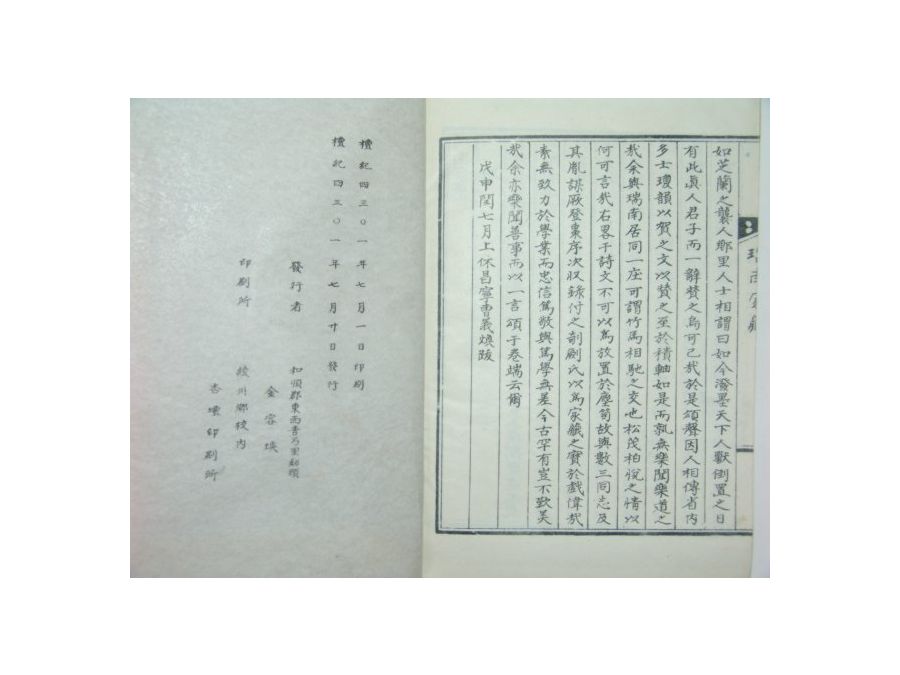 如芝蘭之襲人鄕里人士相謂曰如今潑墨天下人獸倒置之日
有此眞人君子而一辭賛之烏可已哉於是頌聲因人相傳省內
多士瓊韻以賀之文以賛之至於積軸如是而孰無樂聞樂道之
哉余與瑞南居同一座可謂竹馬相馳之交也松茂柏悅之情以
何可言哉右畧干詩文不可以爲放置於塵筍故與數三同志及
其胤謀厥登棗序次収錄付之剞劂氏以爲家藏之寶於戲偉哉
素無致力於學業而忠信篤敬與篤學無差今古罕有豈不歎美
哉余亦樂聞善事而以一言頌于卷端云爾
戊申閏七月上休昌寧曺義煥跋
檀紀四三〇一年七月一日印刷
檀紀四三〇一年七月廿日發行
發行者
和順郡東面靑弓里
金容煥
印刷所
綾州鄕校內
杏壇印刷所